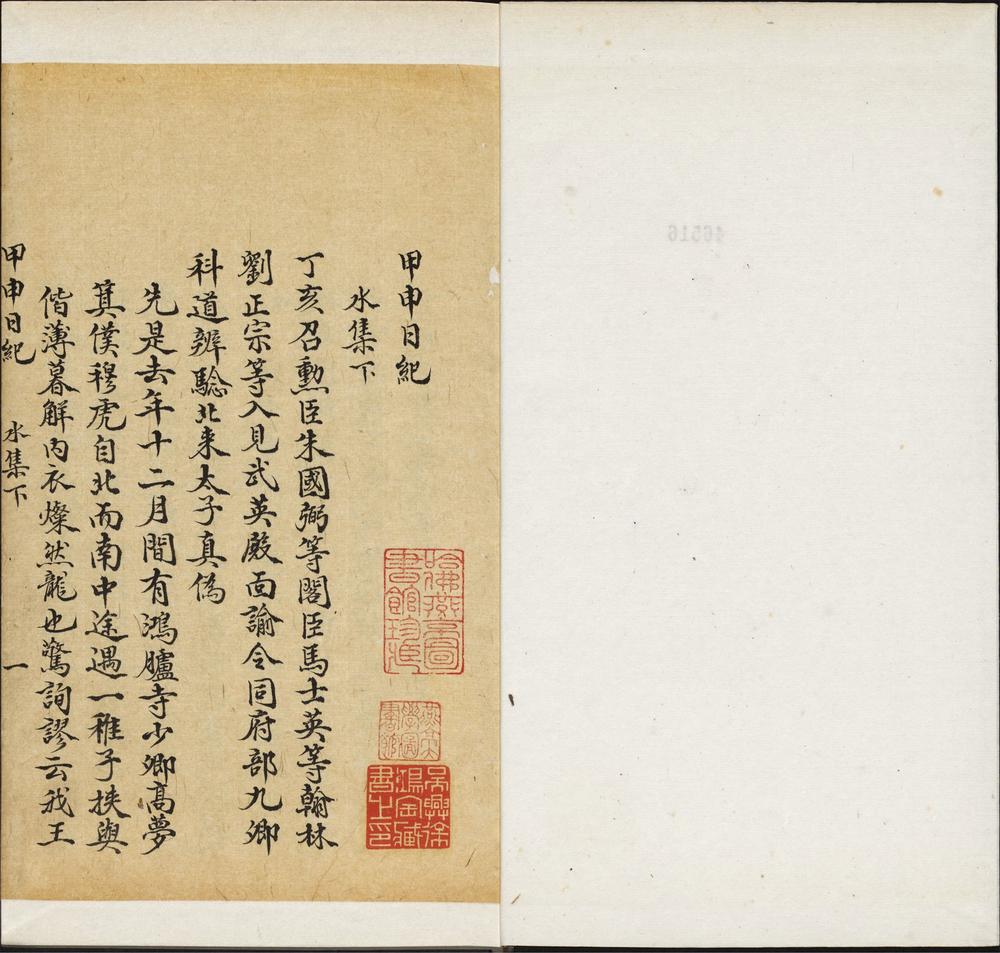 甲申日紀
水集下
丁亥召勲臣朱國弼等閣臣馬士英等翰林
劉正宗等入見武英殿面諭令同府部九卿
科道辨騐北来太子真偽
先是去年十二月間有鴻臚寺少卿高夢
箕僕穆虎自北而南中途遇一稚子挟與
偕薄暮解內衣燦然龍也驚詢謬云我王
甲申日紀 水集下 一
哈佛燕京圖書館珍藏
燕京大學圖書館
吳興徐鴻寶藏書之印
46516